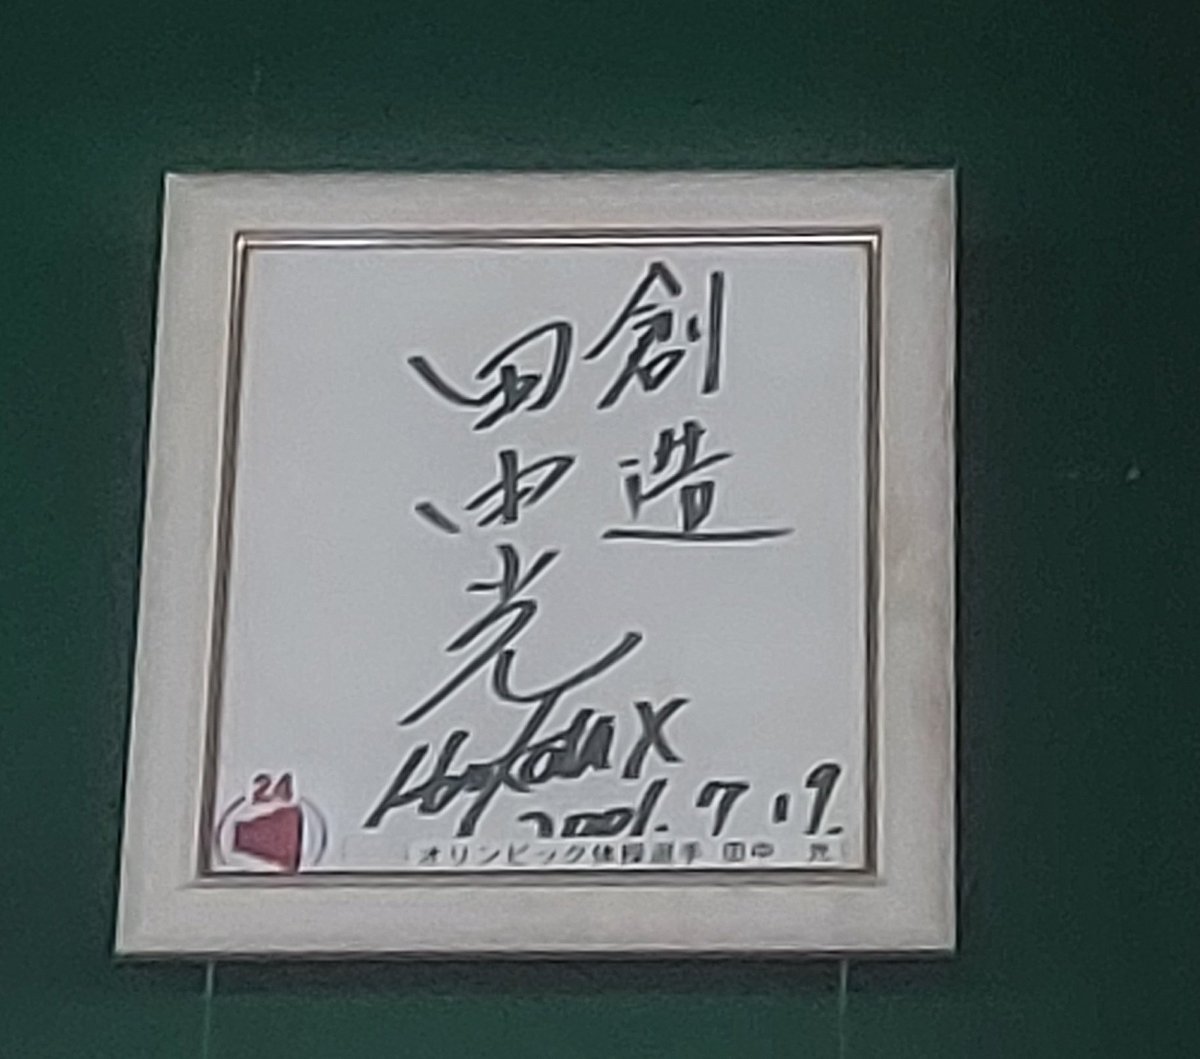 創造
田中光
2001.7.19.
24
オリンピック体操選手 田中 光